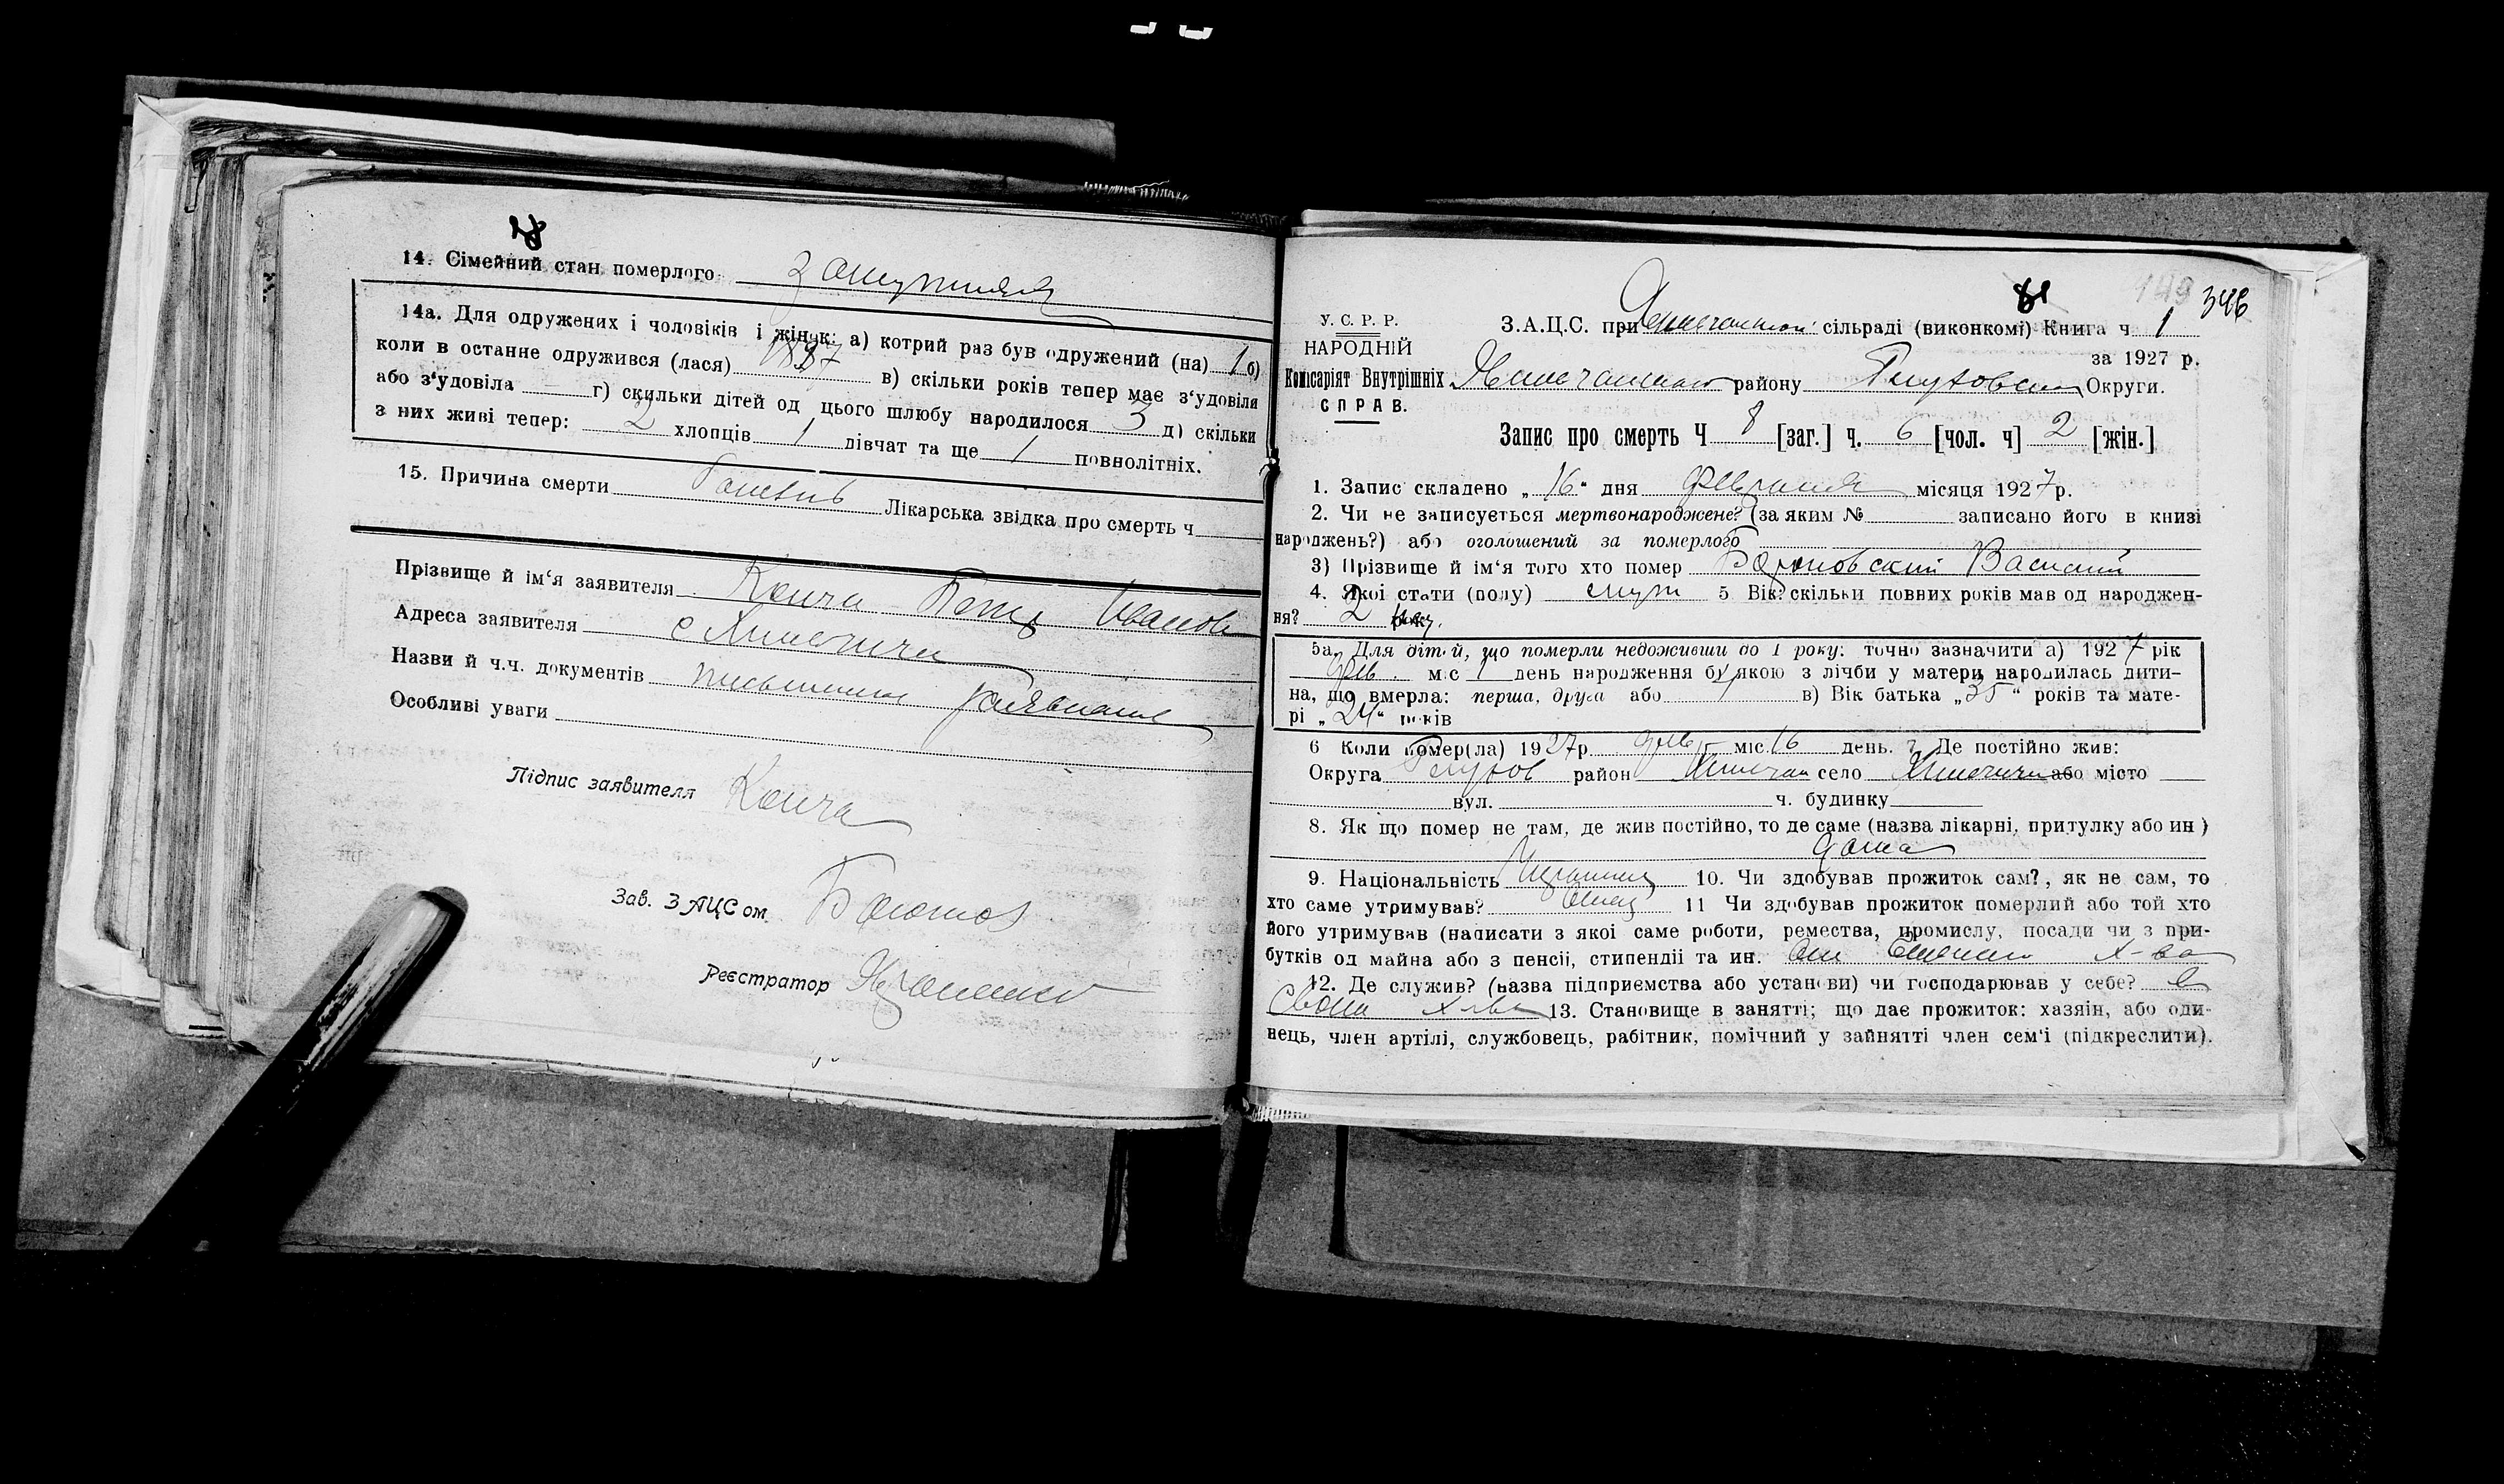 14. Сімейний стан померлого замужняя
14а. Для одружених і чоловіків і жінок: а) котрий раз був одружений (на) 1 б)
коли в останне одружився (лася) 1887 в) скільки років тепер має з'удовіля
або з'удовіла г) скильки дітей од цього шлюбу народилося 3 д) скільки
з них живі тепер: 2 хлопців 1 дівчат та ще 1 повнолітніх.
15. Причина смерти Лікарська звідка про смерть ч
Прізвище й ім'я заявителя Конча Иванов
Адреса заявителя с Хинельчи
Назви й ч.ч. документів письменни заявление
Особливі уваги
Підпис заявителя Конча
Зав. ЗАЦСом
Реєстратор
149 346
У. С. Р. Р.
НАРОДНІЙ
Комісаріят Внутрішніх
СПРАВ.
З.А.Ц.С. при сільраді (виконкомі) Книга ч 1
за 1927 р.
району Глуховской Округи.
Запис про смерть Ч 8 [заг.] ч. 6 [чол. ч] 2 [жін.]
1. Запис складено „16" дня февраля місяця 1927 р.
2. Чи не записується мертвонароджене? (за яким № записано його в книзі
народжень?) або оголошений за померлого
3) Прізвище й ім'я того хто помер Василий
4. Якоі стати (полу) муж 5. Вік? скільки повних років мав од народжен-
ня? 2 нед.
5а. Для дітей, що померли недоживши до 1 року: точно зазначити а) 1927 рік
фев. міс 1 день народження б) якою з лічби у матери народилась дити-
на, що вмерла: перша, друга або в) Вік батька „35" років та мате-
рі „24" років
6 Коли помер(ла) 1927р. фев міс. 16 день. 7 Де постійно жив:
Округа Глухов район село або місто
вул. ч. будинку
8. Як що помер не там, де жив постійно, то де саме (назва лікарні, притулку або ин )
дома
9. Національність Украинец 10. Чи здобував прожиток сам?, як не сам, то
хто саме утримував? Отец 11 Чи здобував прожиток померлий або той хто
його утримував (написати з якоі саме роботи, ремества, промислу, посади чи з при-
бутків од майна або з пенсіі, стипендіі та ин. х-ва
12. Де служив? (назва підприємства або установи) чи господарював у себе? в
своем х-ве 13. Становище в занятті; що дає прожиток: хазяін, або оди-
нець, член артілі, службовець, рабітник, помічний у зайнятті член сем'і (підкреслити).